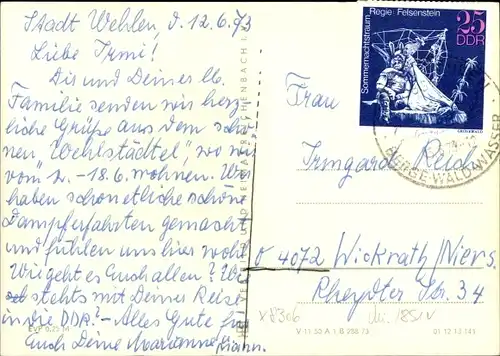 Stadt Wehlen, d. 12.6.73
Liebe Irmi!
Dir und Deiner lb.
Familie senden wir herz-
liche Grüße aus dem schö-
nen "Wehlstädtel", wo wir
vom - 18.6. wohnen. Wir
haben schon etliche schöne
Dampferfahrten gemacht
und fühlen uns hier wohl.
Wie geht es Euch allen? Wie
stehts mit Deiner Reise
in die DDR? - Alles Gute für
Euch Deine Marianne
EVP 0,22 M
Sommernachtstraum
Regie: Felsenstein
25
DDR
BERGE-WALD-WASSER
Frau
Irmgard Reich
4072 Wickrath/Niers
Rheydter Str. 34
V 11 50 A 1 B 258/73
01 12 13 141